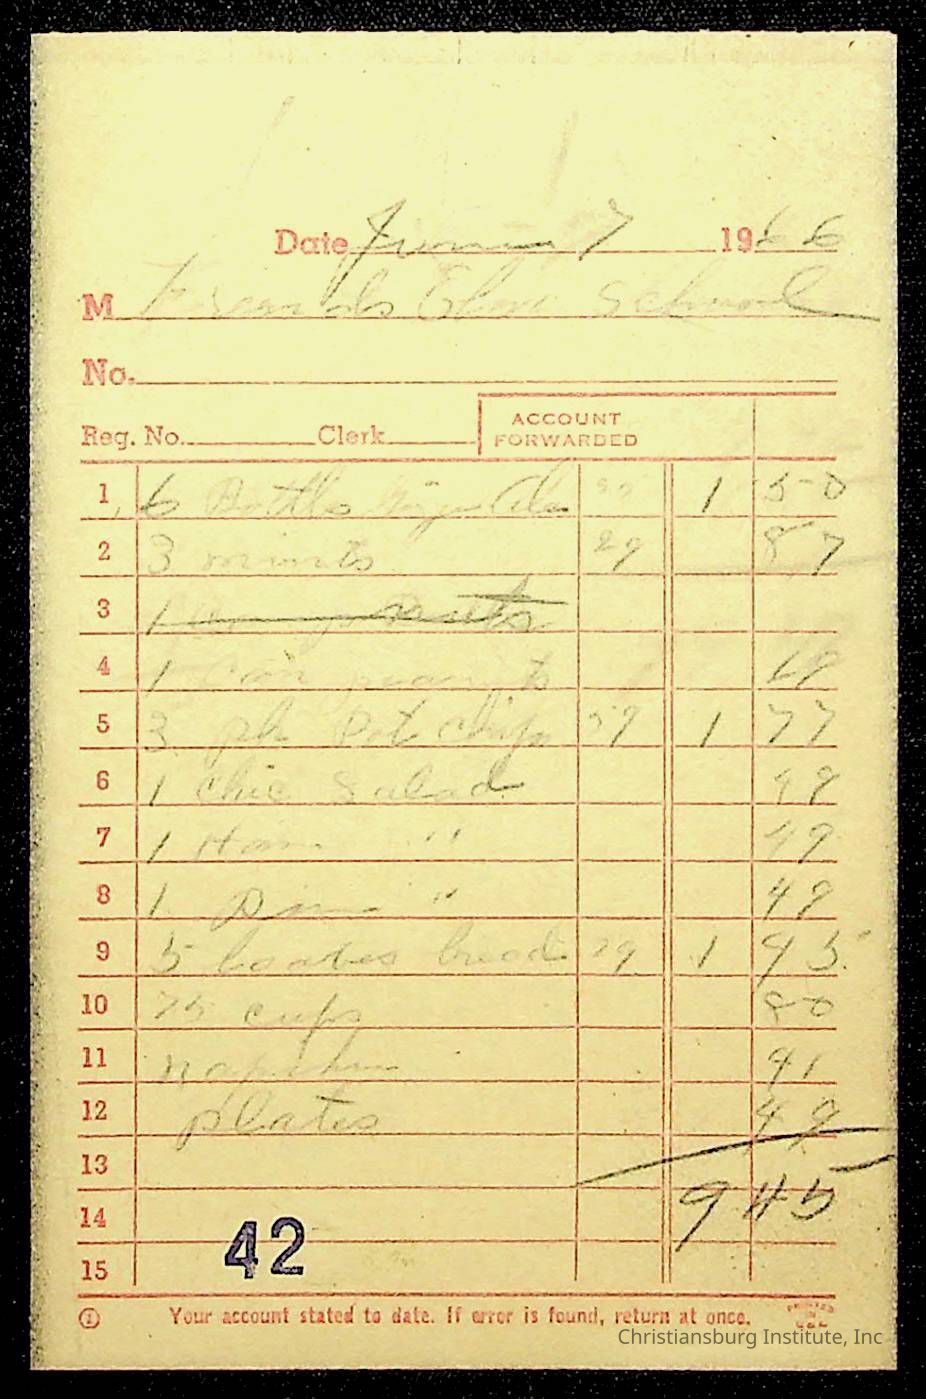 Date June 7 1966
M Friends Elem School
No.
Reg. No. Clerk ACCOUNT FORWARDED
1 6 Bottles Ginger Ale 1 50
2 3 mints 29 87
3 1 nuts
4 1 can peanuts
5 3 pk Pot chips 59 1 77
6 1 Chic Salad 49
7 1 Ham " 49
8 1 Pim " 49
9 5 loaves bread 29 1 45
10 75 cups 80
11 napkins 41
12 plates 49
13
14 9 45
15
42
Your account stated to date. If error is found, return at once.
PRINTED IN U.S.A.
Christiansburg Institute, Inc